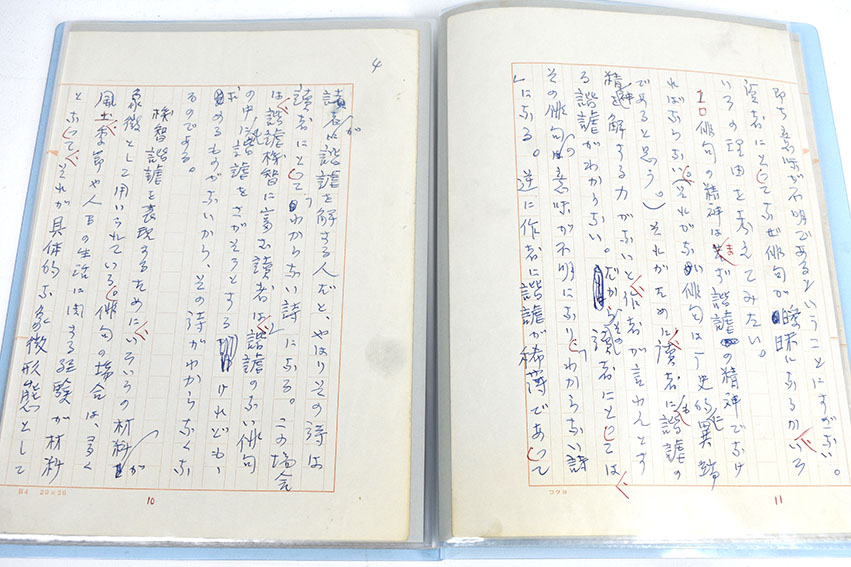 即ち意味が不明であるということにすぎない。
讀者にとってなぜ俳句が曖昧になるかいろ
いろの理由を考えてみたい。
俳句の精神はまず諧謔の精神でなけ
ればならない(それがない俳句は歴史的に異端
であると思う。)それがために讀者に諧謔の
精神を解する力がないと作者が言わんとす
る諧謔がわからない。だからその讀者にとっては
その俳句の意味が不明になり「わからない詩
」になる。逆に作者に諧謔が稀薄であって
コクヨ
11
4
讀者が諧謔を解する人だと、やはりその詩は
讀者にとって「わからない詩」になる。この場合
は諧謔機智に富む讀者は諧謔のない俳句
の中に諧謔をさがそうとするけれども、
もとめるものがないから、その詩がわからなくな
るのである。
機智諧謔を表現するためにいろいろの材料が
象徴として用いられている。俳句の場合は、多く
風土季節や人間の生活に関する経験が材料
となって、それが具体的な象徴形態として
20×20
10